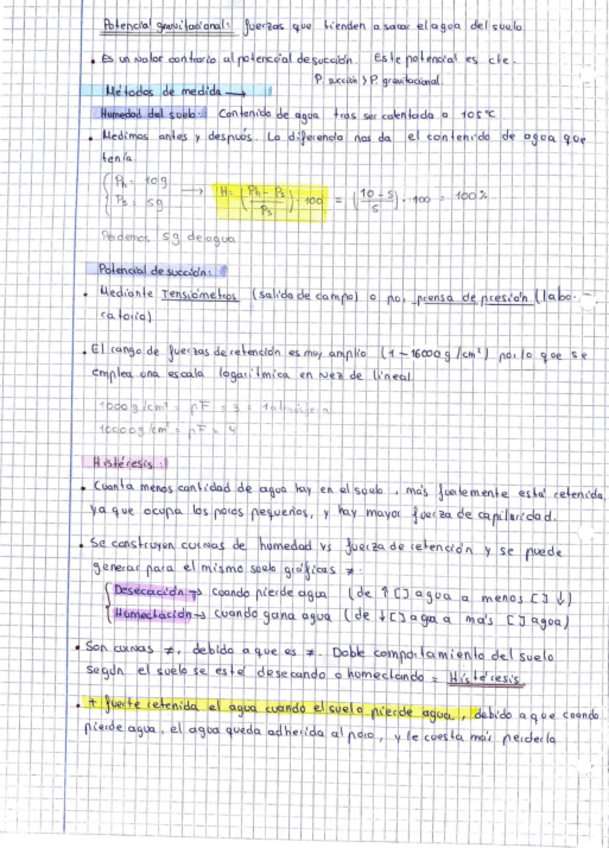 Potencial gravitacional: fuerzas que tienden a sacar el agua del suelo
• Es un valor contrario al potencial de succión. Este potencial es cte.
P. succión > P. gravitacional.
Métodos de medida →
Humedad del suelo: Contenido de agua tras ser calentada a 105°C
• Medimos antes y después. La diferencia nos da el contenido de agua que
tenía.
Ph = 10g
Ps = 5g → H = (Ph - Ps / Ps) · 100 = (10 - 5 / 5) · 100 = 100%
Perdemos 5g de agua
Potencial de succión:
• Mediante Tensiómetros (salida de campo) o por prensa de presión (labo-
ratorio)
• El rango de fuerzas de retención es muy amplio (1 - 16000 g/cm²) por lo que se
emplea una escala logarítmica en vez de lineal
1000 g/cm² = pF = 3 = 1 atmósfera
10000 g/cm² = pF = 4
Histéresis:
• Cuanta menos cantidad de agua hay en el suelo, más fuertemente está retenida,
ya que ocupa los poros pequeños, y hay mayor fuerza de capilaridad.
• Se construyen curvas de humedad vs fuerza de retención y se puede
generar para el mismo suelo gráficas ≠.
Desecación → cuando pierde agua (de ↑ [] agua a menos [] ↓)
Humectación → cuando gana agua (de ↓ [] aga a más [] agua)
• Son curvas ≠, debido a que es ≠. Doble comportamiento del suelo
según el suelo se esté desecando o humectando = Histéresis
• + fuerte retenida el agua cuando el suelo pierde agua, debido a que cuando
pierde agua, el agua queda adherida al poro, y le cuesta más perderla